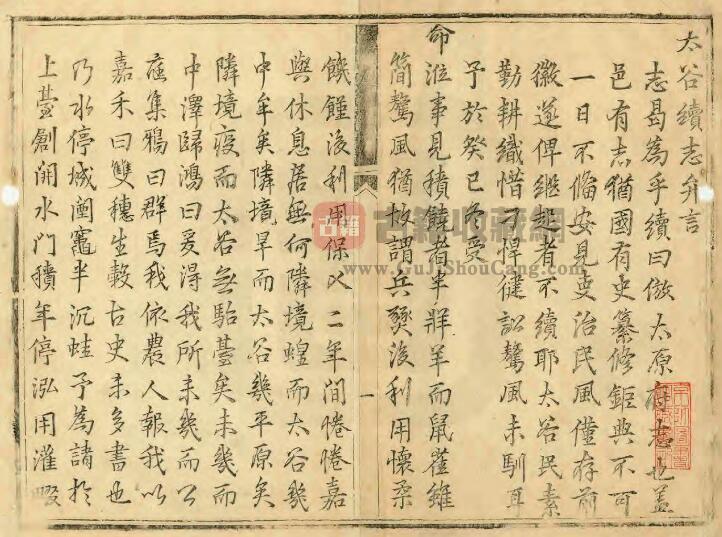 太谷續志弁言
志曷為乎續曰倣太原府志也蓋
邑有志猶國有史纂修鉅典不可
一日不備安見吏治民風僅存前
徽遂俾繼起者不續耶太谷民素
勤耕織惜刁悍健訟驁風未馴耳
予於癸巳冬受
命涖事見積饒者半牂羊而鼠雀雖
簡驁風猶故謂兵燹後利用懷柔
饑饉後利用保乂二年間惓惓嘉
與休息居無何隣境蝗而太谷幾
中牟矣隣境旱而太谷幾平原矣
隣境疫而太谷無駘薹矣未幾而
中澤歸鴻曰爰得我所未幾而公
庭集鴉曰群焉我依農人報我以
嘉禾曰雙穗生穀古史未多書也
乃水停城闉竈半沉蛙予為諸於
上臺創開水門積年停泓用灌畷
一
古籍
古籍收藏網
www.GuJiShouCang.com